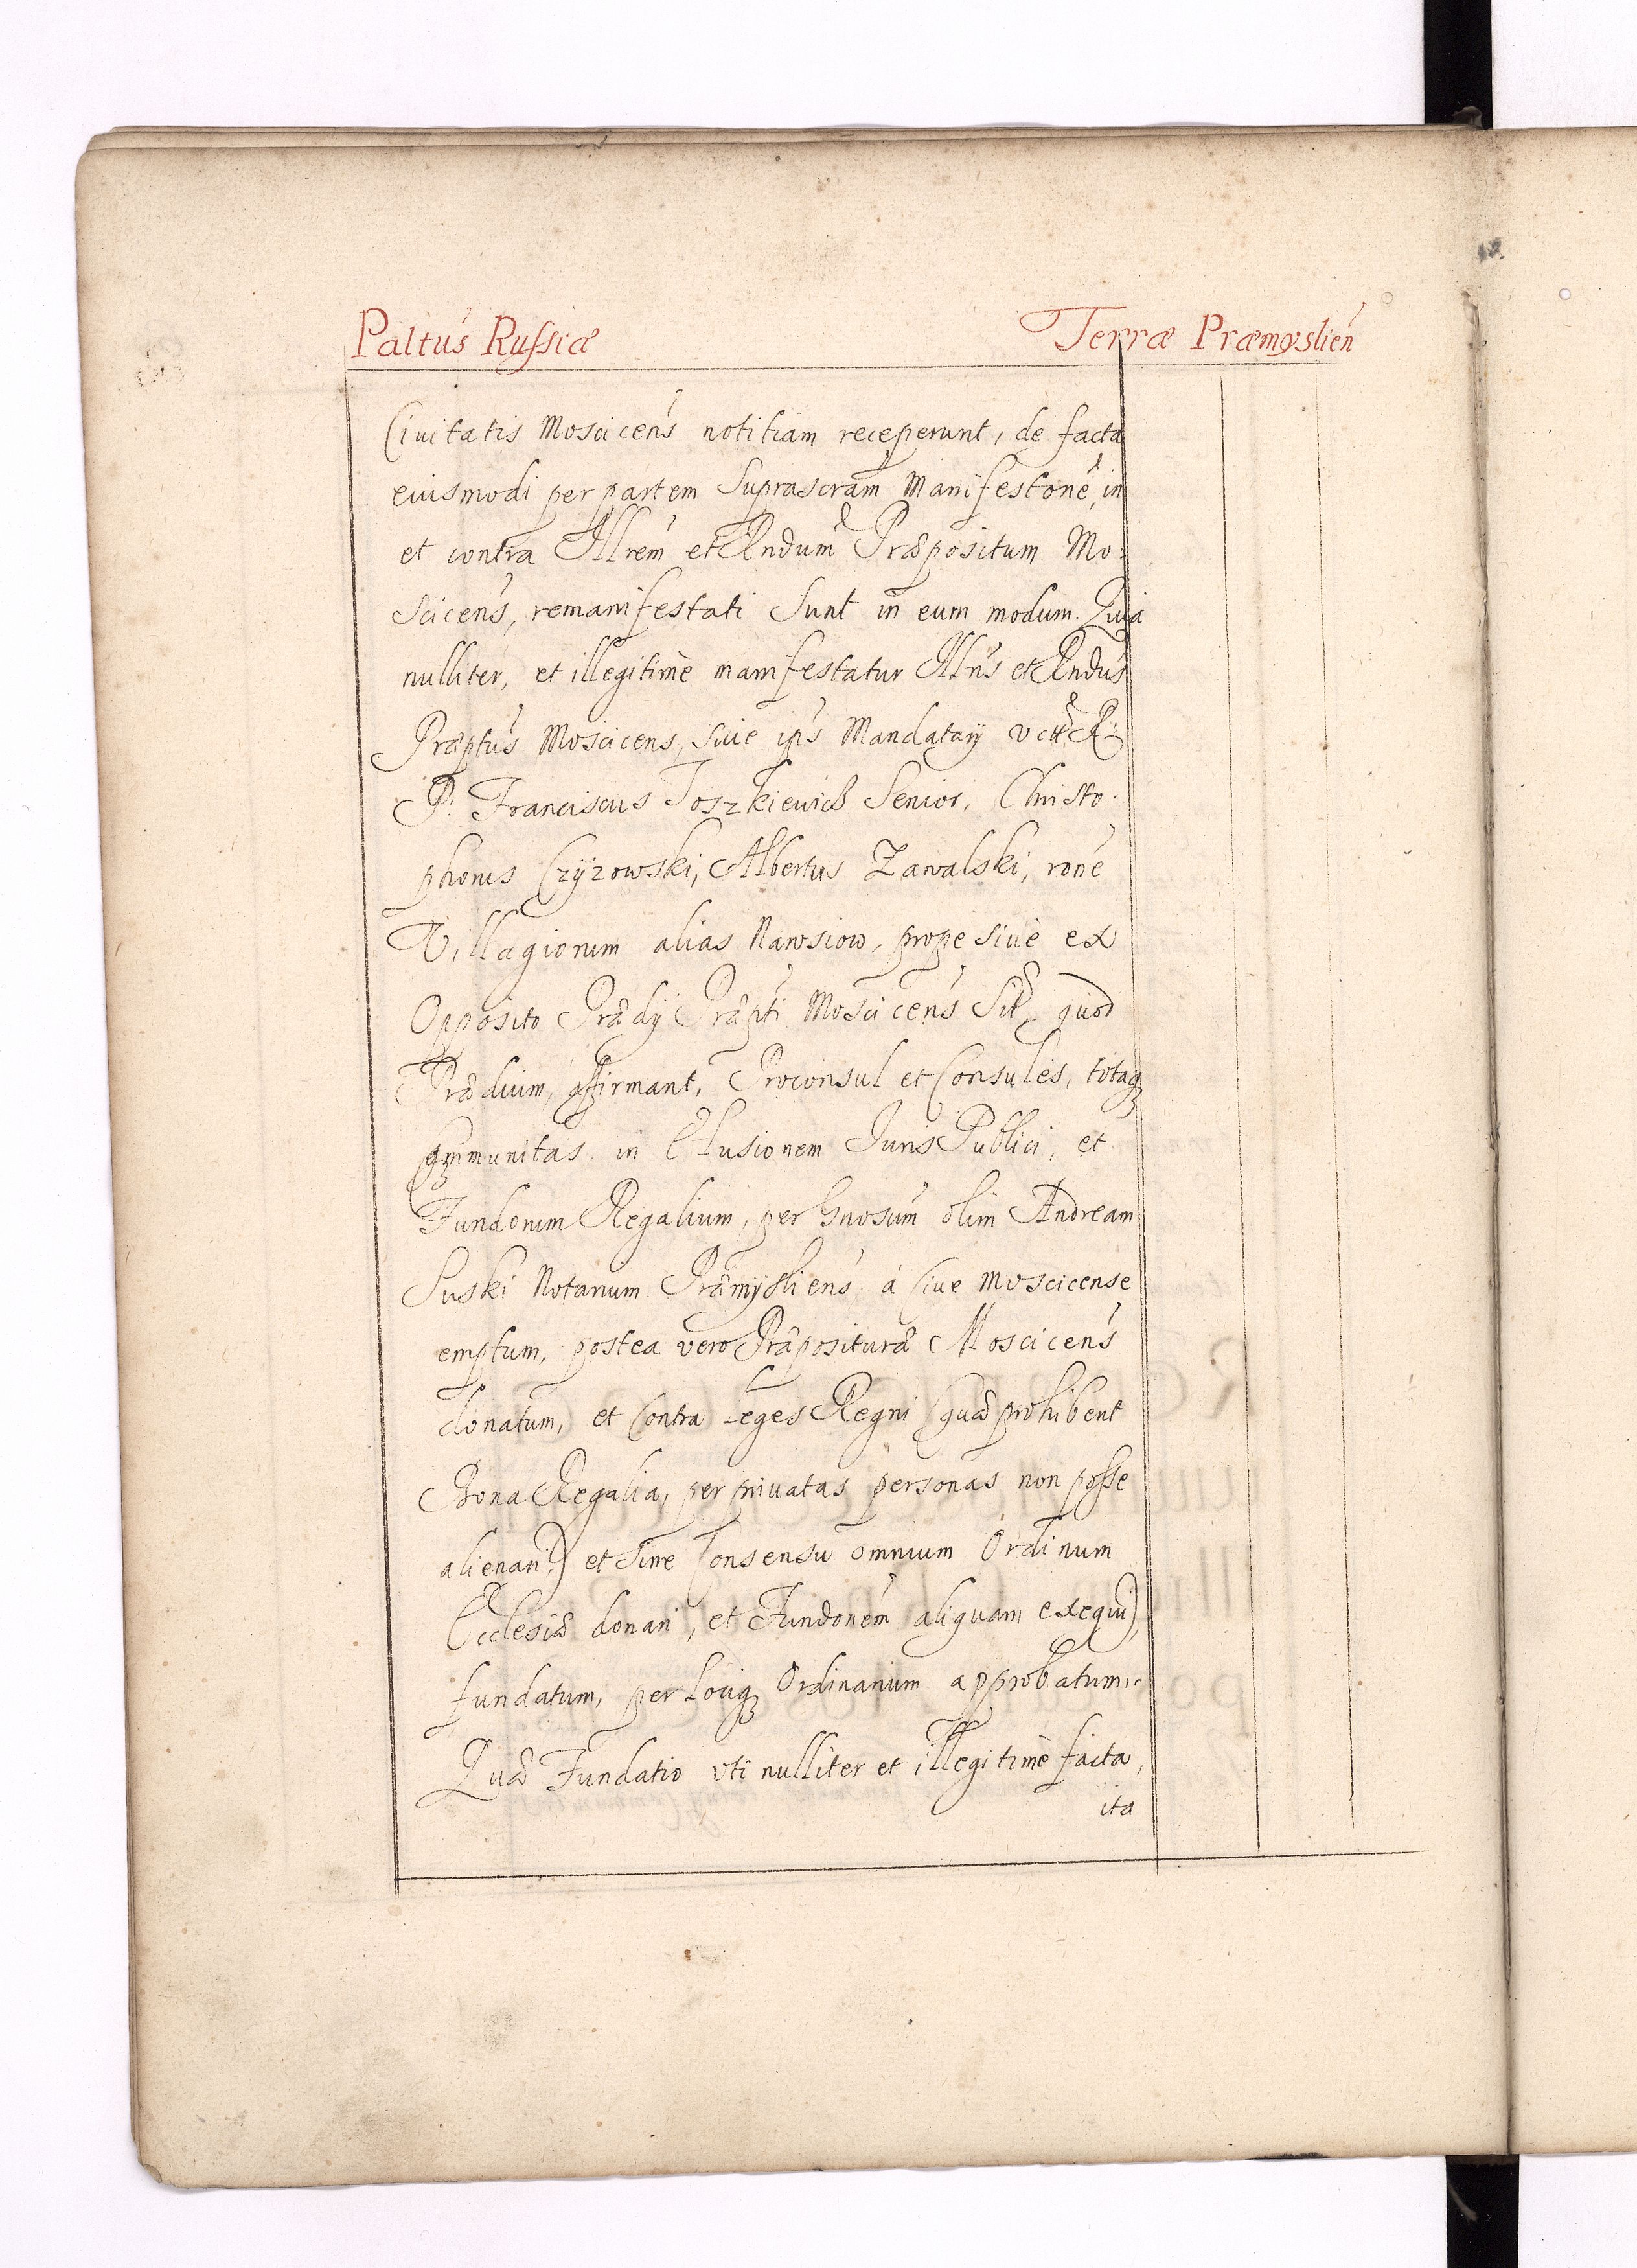 Paltus Russiæ Terræ Præmyslien
Civitatis Moscicens notitiam receperunt, de facta
eiusmodi per partem Suprascram Manifestone, in
et contra Allrem et Rndum Præpositum Mo:
scicens, remanifestati sunt in eum modum. Quia
nulliter, et illegitimè manifestatur Allris et Rndus
Præptus Moscicens, sive ips Mandatarij utt R:
P: Franciscus Toszkiewicz Senior, Christo:
phorus Czyżowski, Albertus Zawalski, rone
Villagiorum alias Nawsiow, prope sive ex
Opposito Prædij Præpti Moscicens Sit, quod
Prædium, affirmant, Proconsul et Consules, totaq
Communitas, in Elusionem Juris Publici, et
Fundorum Regalium, per Gnosum olim Andream
Suski Notarium Præmysliens, à Cive Moscicense
emptum, postea vero Præposituræ Moscicens
donatum, et Contra Leges Regni (quæ prohibent
Bona Regalia, per privatas personas non posse
alienari) et sine Consensu omnium Ordinum
Ecclesiæ donari, et Fundonem aliquam exequi),
fundatum, per Lociq Ordinarium approbatum.
Quæ Fundatio uti nulliter et illegitimè facta,
ita